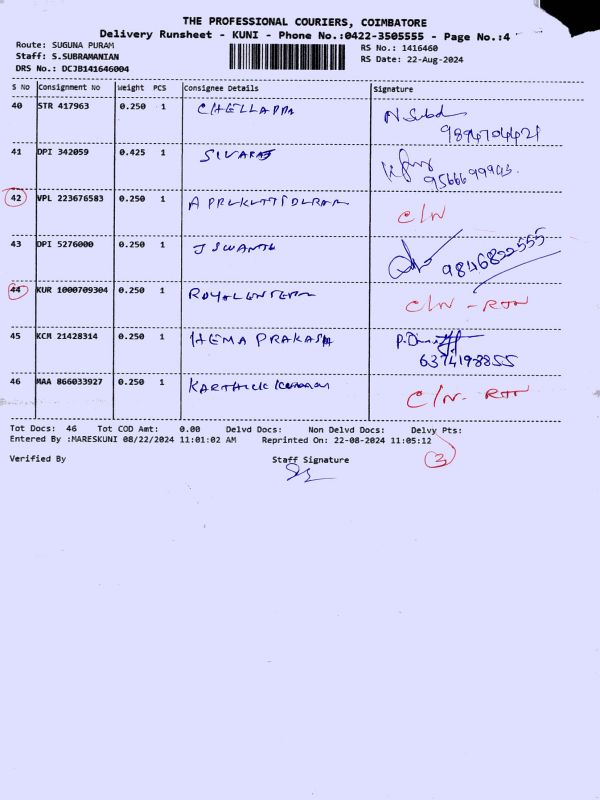 THE PROFESSIONAL COURIERS, COIMBATORE
Delivery Runsheet - KUNI - Phone No.:0422-3505555 - Page No.:4
Route: SUGUNA PURAM RS No.: 1416460
Staff: S.SUBRAMANIAN RS Date: 22-Aug-2024
DRS No.: DCJB141646004
S No Consignment No Weight PCS Consignee Details Signature
40 STR 417963 0.250 1 CHELLAPPA
9894704421
41 DPI 342059 0.425 1 SIVARAJ
42 VPL 223676583 0.250 1 C/N
43 DPI 5276000 0.250 1 JSWANTH 9846822555
44 KUR 1000709304 0.250 1 C/N - RTN
45 KCM 21428314 0.250 1 HEMA PRAKASH
6374198855
46 MAA 866033927 0.250 1 C/N - RTN
Tot Docs: 46 Tot COD Amt: 0.00 Delvd Docs: Non Delvd Docs: Delvy Pts:
Entered By :MARESKUNI 08/22/2024 11:01:02 AM Reprinted On: 22-08-2024 11:05:12
3
Verified By Staff Signature